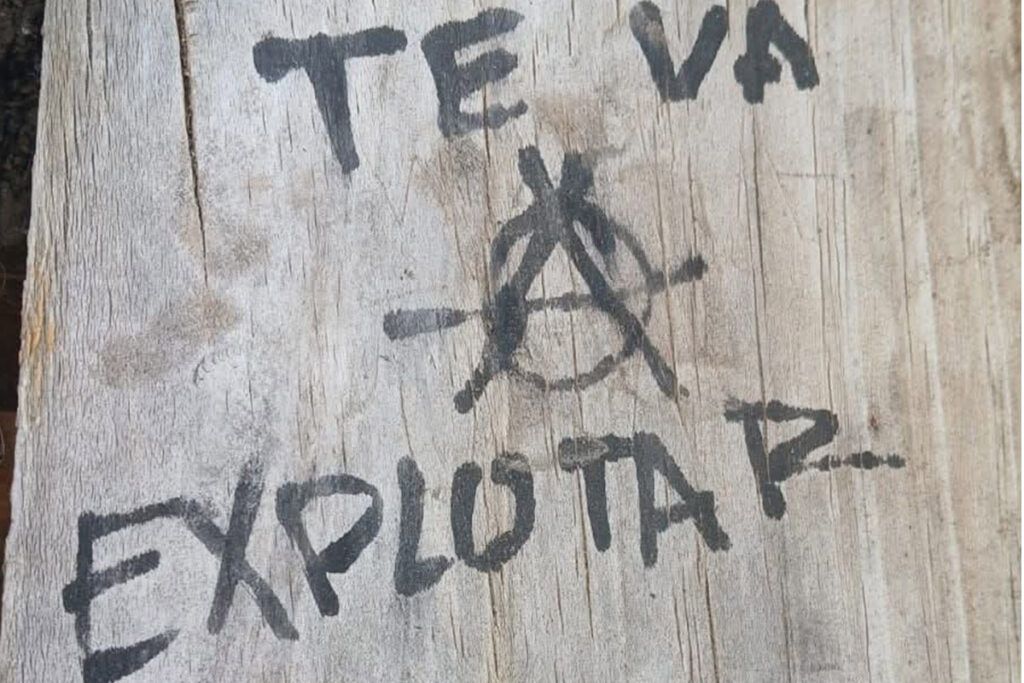 TE VA
A
EXPLOTAR